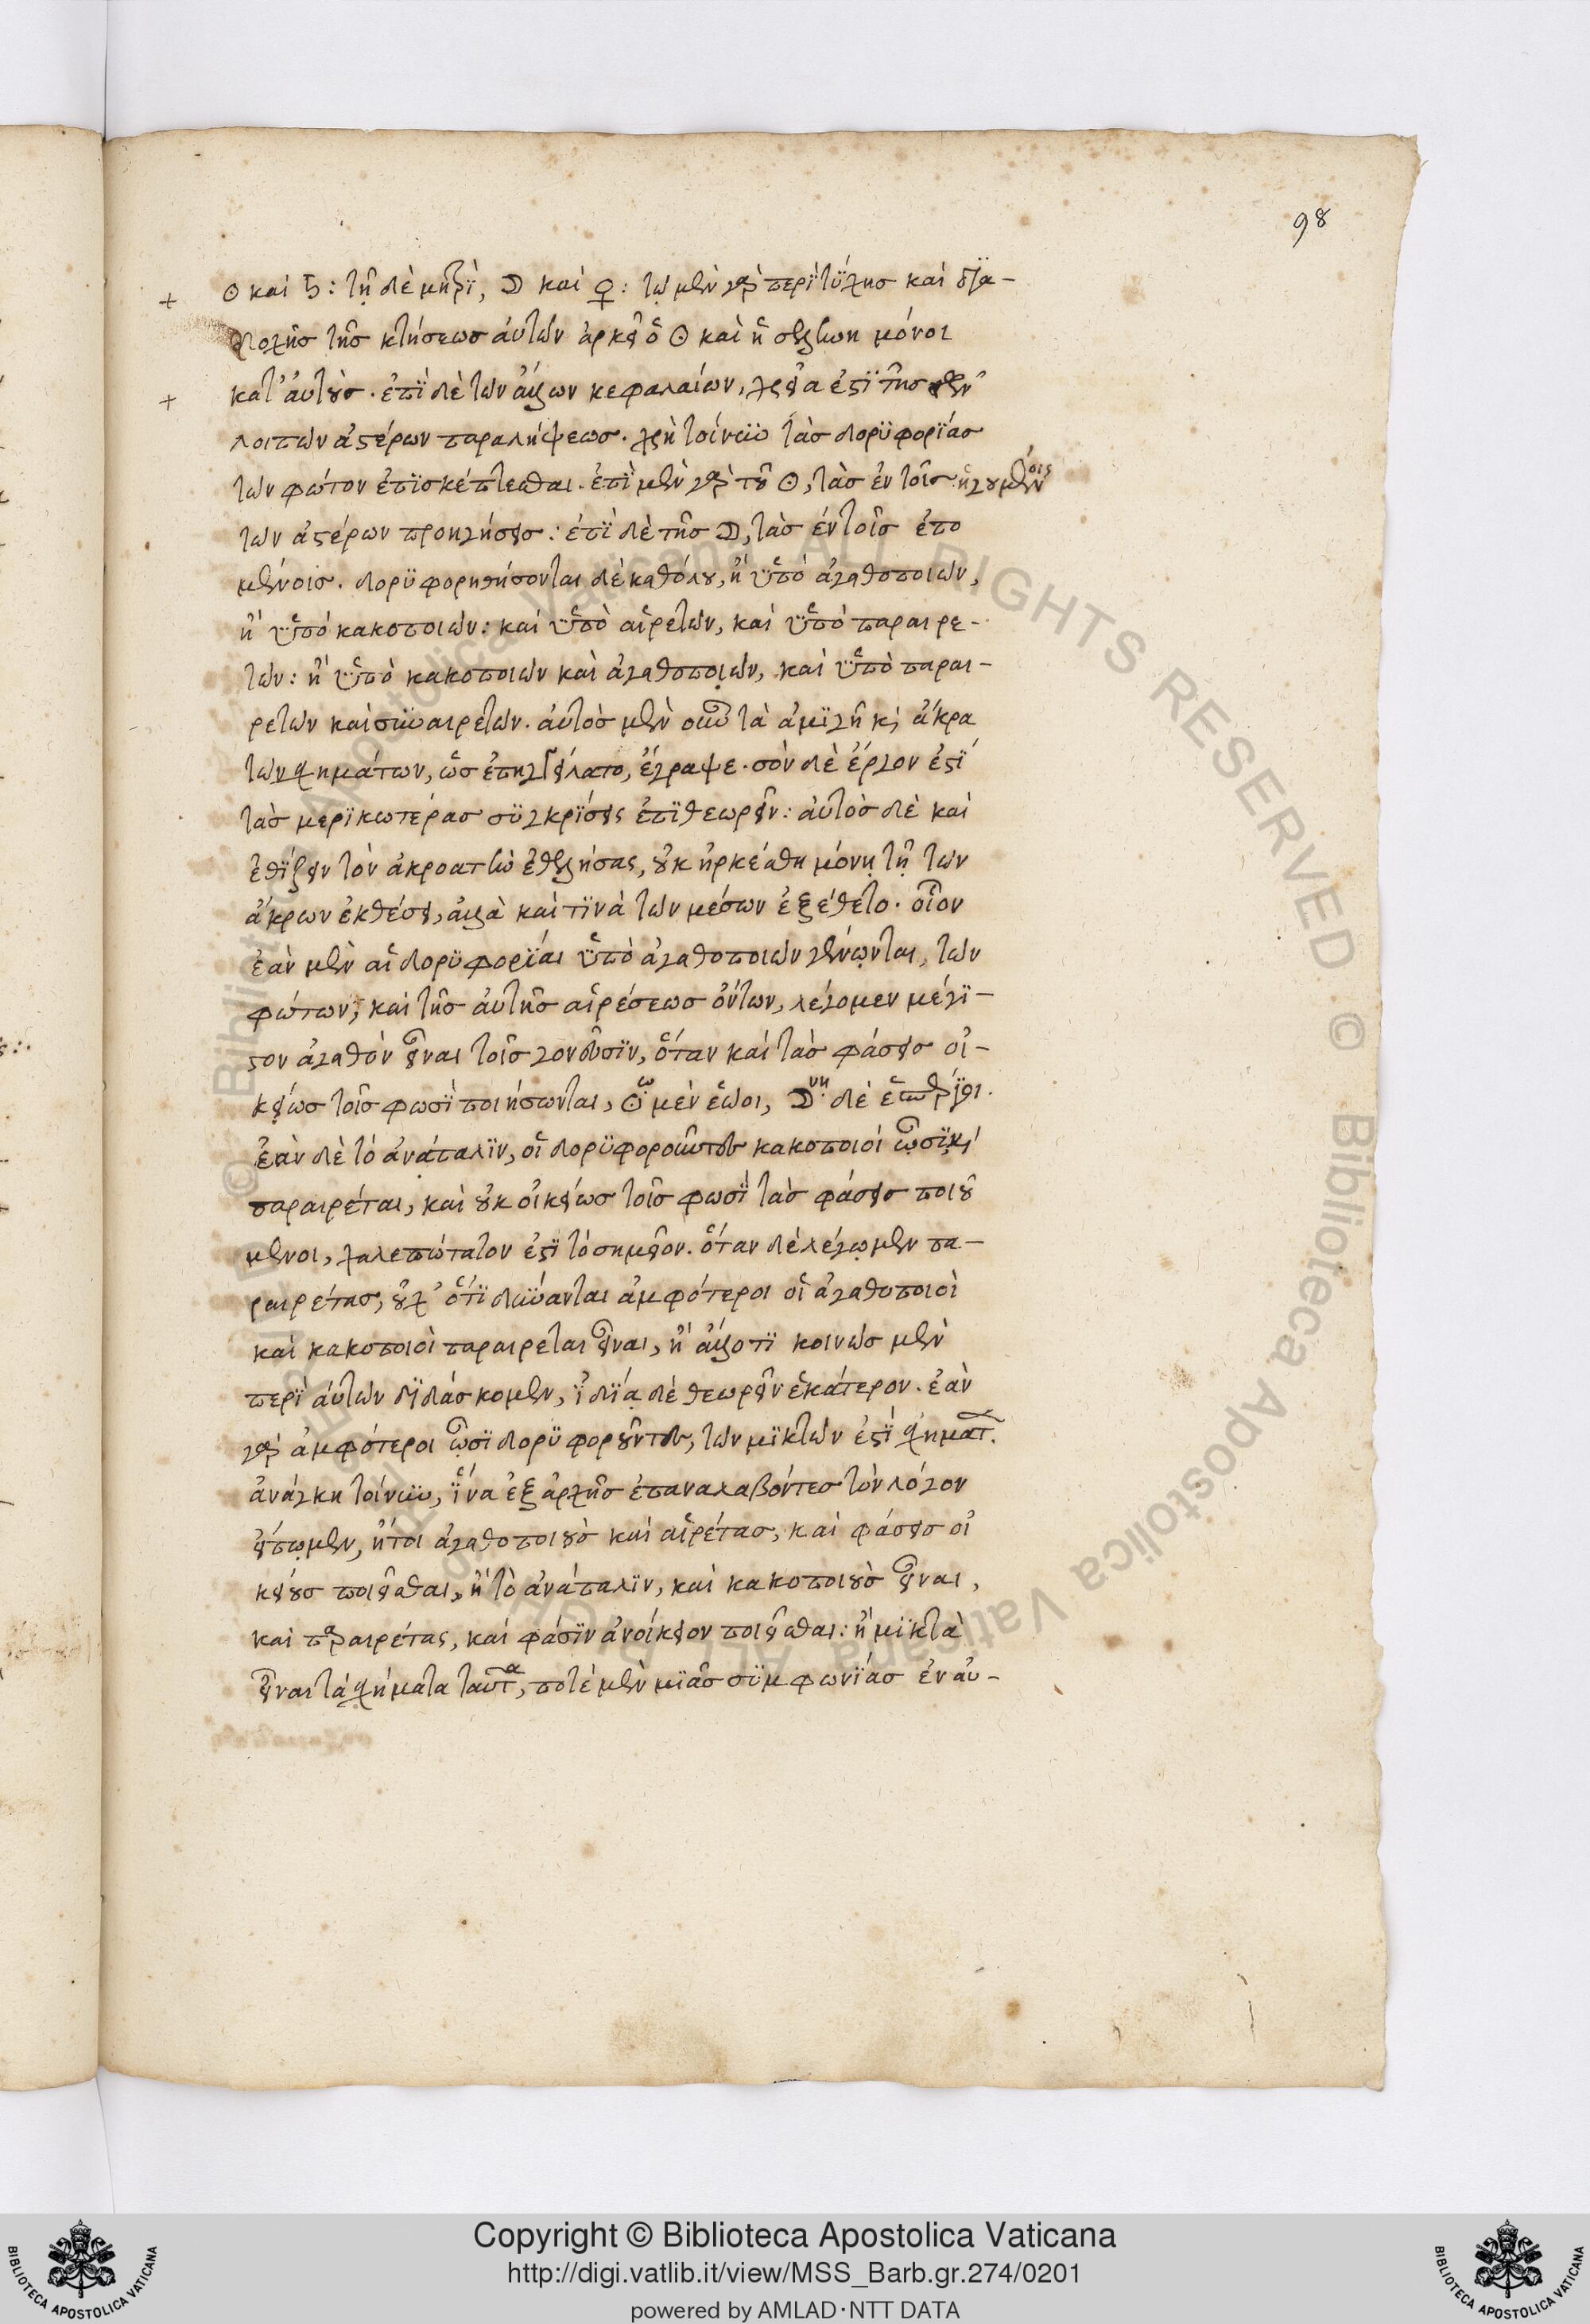 98
☉ καὶ ♄: τῇ δὲ μητρὶ, ☽ καὶ ♀: τῷ μὲν γὰρ περὶ τύχης καὶ δϊα-
δοχῆς τῆς κτήσεως αὐτῶν ἀρκεῖ ὁ ☉ καὶ ἡ σελήνη μόνοι
κατ' αὐτοὺς. ἐπὶ δὲ τῶν ἄλλων κεφαλαίων, χρεία ἐστὶ τῆς
λοιπῶν ἀστέρων παραλήψεως. χρὴ τοίνυν τὰς δορυφορίας
τῶν φώτον ἐπισκέπτεσθαι. ἐπὶ μὲν γὰρ τοῦ ☉, τὰς ἐν τοῖς ἡγουμένοις
τῶν ἀστέρων προηγήσεις: ἐπὶ δὲ τῆς ☽, τὰς ἐν τοῖς ἑπο
μένοις. δορυφορηθήσονται δὲ καθόλου, ἢ ὑπὸ ἀγαθοποιῶν,
ἢ ὑπὸ κακοποιῶν: καὶ ὑπὸ αἱρετῶν, καὶ ὑπὸ παραιρε-
τῶν: ἢ ὑπὸ κακοποιῶν καὶ ἀγαθοποιῶν, καὶ ὑπὸ παραι-
ρετῶν καὶ συναιρετῶν. αὐτὸς μὲν οὖν τὰ ἀμιγῆ κ; ἄκρα
τῶν σχημάτων, ὡς ἐπηγγείλατο, ἔγραψε. σὸν δὲ ἔργον ἐστὶ
τὰς μερικωτέρας συγκρίσεις ἐπιθεωρεῖν: αὐτὸς δὲ καὶ
ἐθίζειν τὸν ἀκροατὴν ἐθελήσας, οὐκ ἠρκέσθη μόνῃ τῇ τῶν
ἄκρων ἐκθέσει, ἀλλὰ καὶ τινὰ τῶν μέσων ἐξέθετο. οἷον
ἐὰν μὲν αἱ δορυφορίαι ὑπὸ ἀγαθοποιῶν γένωνται, τῶν
φώτων, καὶ τῆς αὐτῆς αἱρέσεως ὄντων, λέγομεν μέγι-
στον ἀγαθὸν εἶναι τοῖς γονεῦσιν, ὅταν καὶ τὰς φάσεις οἰ-
κείως τοῖς φωσὶ ποιήσωνται, ☉ω μὲν ἑῶοι, ☽νη δὲ ἑσπέριοι.
ἐὰν δὲ τὸ ἀνάπαλιν, οἱ δορυφοροῦντες κακοποιοὶ ὦσικ;
παραιρέται, καὶ οὐκ οἰκείως τοῖς φωσὶ τὰς φάσεις ποιού
μενοι, χαλεπώτατον ἐστὶ τὸ σημεῖον. ὅταν δὲ λέγωμεν πα-
ραιρέτας, οὐχ' ὅτι δύνανται ἀμφότεροι οἱ ἀγαθοποιοὶ
καὶ κακοποιοὶ παραιρεται εἶναι, ἢ ἄλλοτι κοινῶς μὲν
περὶ αὐτῶν διδάσκομεν, ἰδίᾳ δὲ θεωρεῖν ἑκάτερον. ἐὰν
γὰρ ἀμφότεροι ὦσι δορυφοροῦντες, τῶν μικτῶν ἐστὶ σχηματ.
ἀνάγκη τοίνυν, ἵνα ἐξ ἀρχῆς ἐπαναλαβόντες τὸν λόγον
εἴπωμεν, ἤτοι ἀγαθοποιοὺς καὶ αἱρέτας, καὶ φάσεις οἰ
κείους ποιεῖσθαι, ἢ τὸ ἀνάπαλιν, καὶ κακοποιοὺς εἶναι,
καὶ παραιρέτας, καὶ φάσιν ἀνοίκειον ποιεῖσθαι: ἢ μικτὰ
εἶναι τὰ σχήματα ταῦτα, ποτὲ μὲν μιᾶς συμφωνίας ἐν αὐ-
Copyright © Biblioteca Apostolica Vaticana
http://digi.vatlib.it/view/MSS_Barb.gr.274/0201
powered by AMLAD·NTT DATA